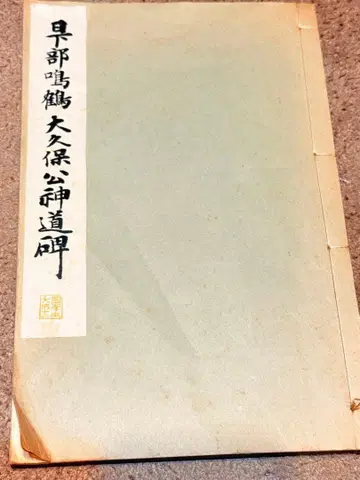 日下部鳴鶴 大久保公神道碑